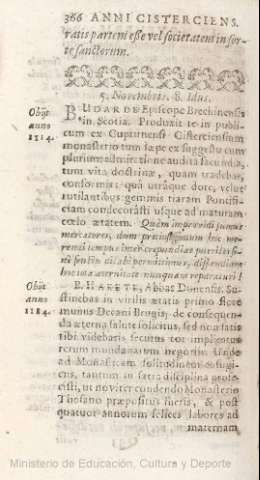 366 ANNI CISTERCIENS.
ratis partem esse vel societatem in sor-
te sanctorum.
5. Novembris. 8. Idus.
Obijt
anno
BUDARDE Episcope Brechinensis
in Scotia. Produxit te in publi-
cum ex Cuprinensi Cisterciensium
monasterio tum sæpe ex suggestu cum
plurium admiratione audita facundia,
tum vita doctrinæ, quam tradebas,
conformis: quâ utrâque dote, velut
rutilantibus gemmis tiaram Pontifi-
ciam condecorâsti usque ad maturam
ætatem. Quàm improvidi sumus
mercatores, dum
Obijt
anno
1184.
B. HAKETE, Abbas Dunensis. Su-
stinebas in virilis ætatis primo flore
munus Decani Brugis; de consequen-
da æterna salute solicitus, sed non satis
tibi videbaris securus tot implicitus
rerum mundanarum negotiis
ad Monasticam solitudinem confugi-
ens, tantum in sacra disciplina profe-
cisti, ut noviter condendo Monasterio
Thosano præpositus fueris, & post
quatuor annorum felices labores ad
maternam
Ministerio de Educación, Cultura y Deporte